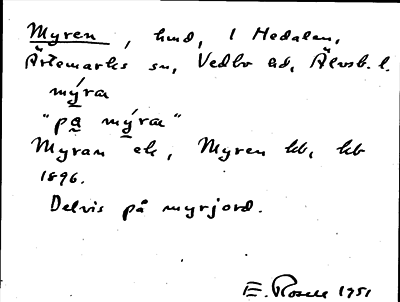 Myren, hmd, i Hedalen,
Ärtemarks sn, Vedbo hd, Älvsb. l.
mýra
"på mýra"
Myran ek, Myren kb, kb
1896.
Delvis på myrjord.
E. Rosell 1951